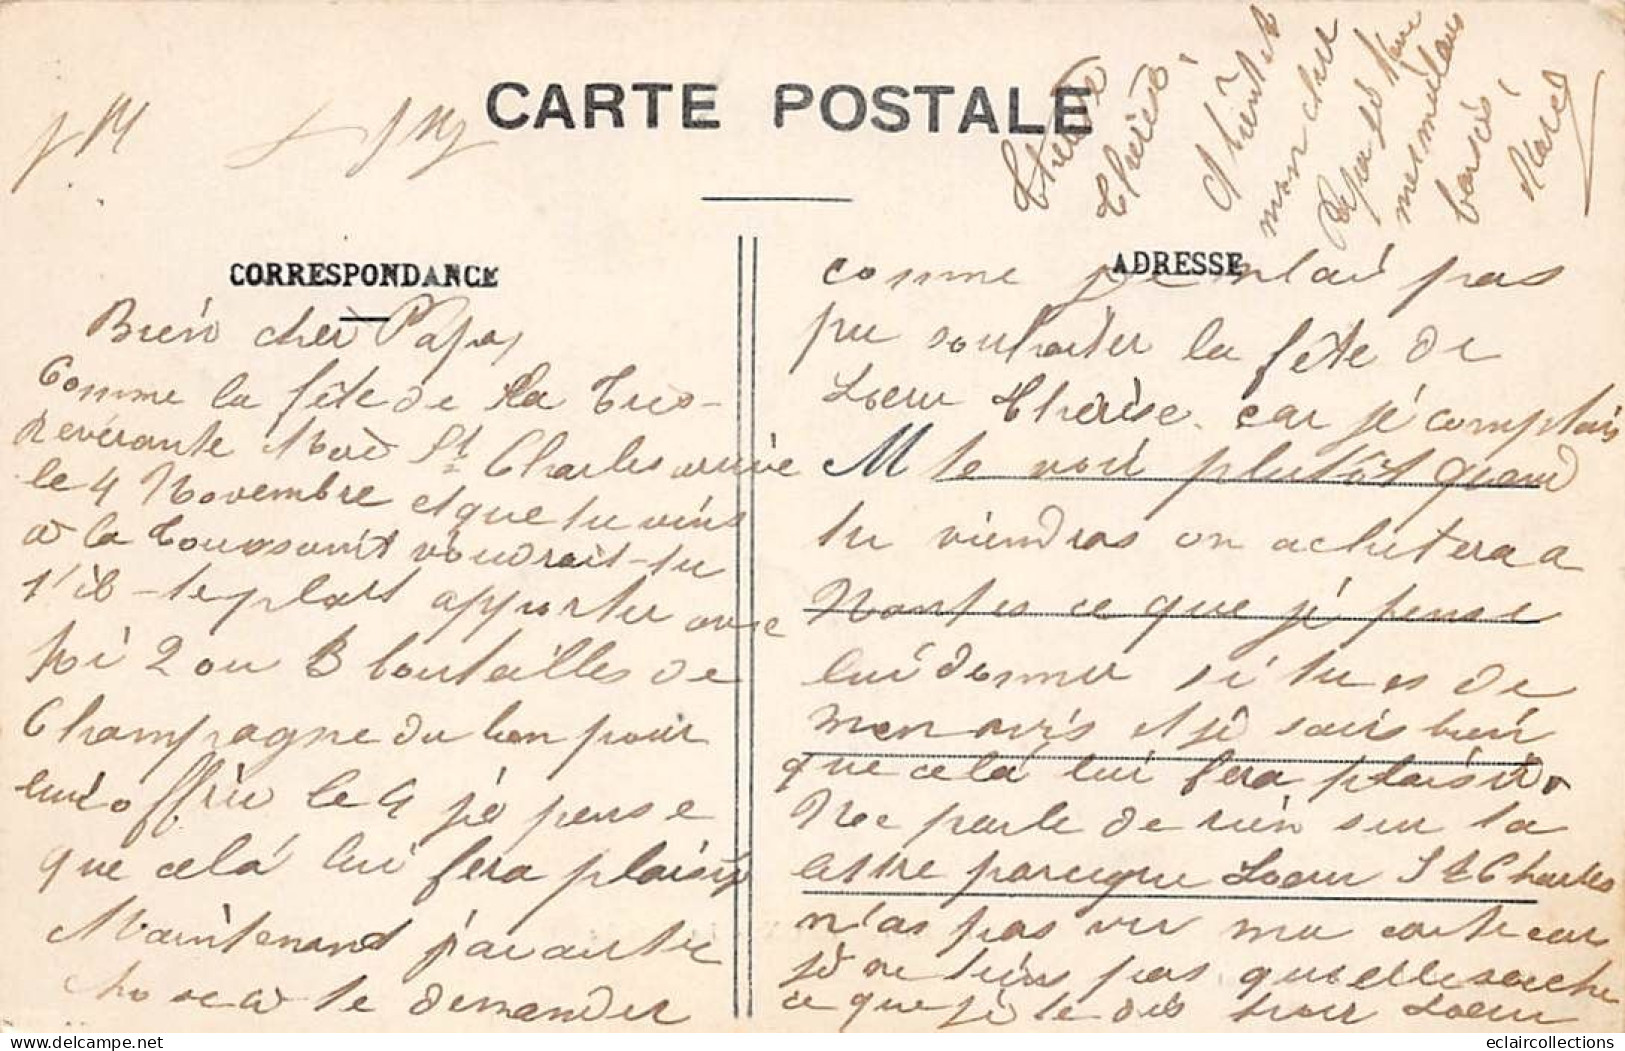 CARTE POSTALE
CORRESPONDANCE
ADRESSE
Bien cher Papa,
Comme la fête de la Très-
Révérante Mère St Charles arrive
le 4 Novembre et que tu viens
à la Toussaint voudrait-tu
s'il-te plaît apporter avec
toi 2 ou 3 bouteilles de
Champagne du bon pour
lui offrir le 4 je pense
que celà lui fera plaisir
Maintenant j'ai autre
chose à te demander
comme je n'ai pas
pu souhaiter la fête de
Soeur Thérèse car je comptais
te voir plutôt quand
tu viendras on achetera a
Nantes ce que je pense
lui donner si tu es de
mon avis et je sais bien
que celà lui fera plaisir
Ne parle de rien sur ta
lettre parceque Soeur St Charles
n'as pas vu ma carte car
je ne tiens pas qu'elle sache
ce que je te dis pour Soeur
Thérèse
A bientôt
mon cher
Papa
baisers
Marcel
eclaircollections